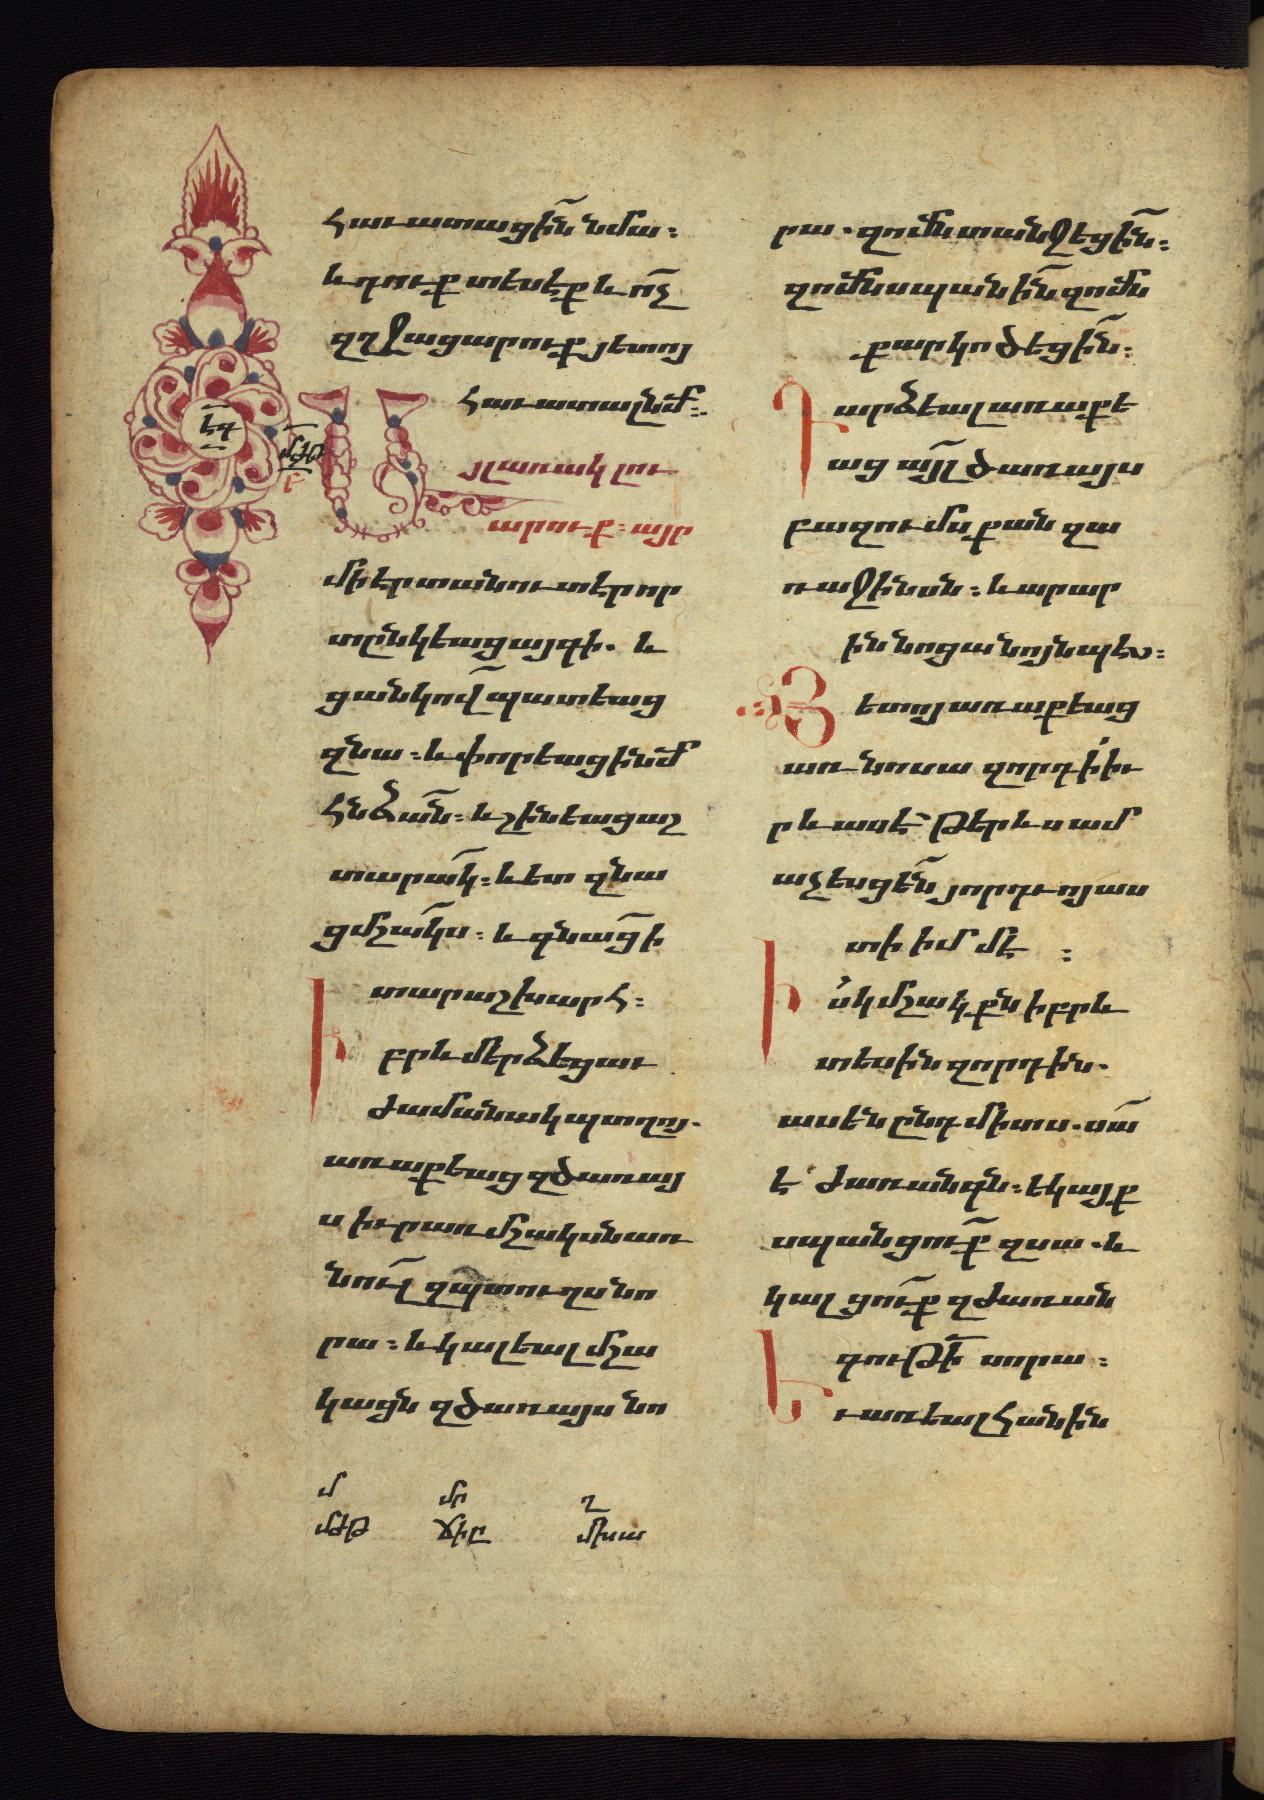 հաւատացին նմա։
և դուք տեսէք և ոչ
զղջացարուք յետոյ
հաւատալ նմ։
Այլ առակ լու
արուք։ այր
մի էր տանուտէր որ
տընկեաց այգի. և
ցանկով պատեաց
զնա։ և փորեաց ինմ
հնձան։ և շինեաց աշ
տարակ։ և ետ զնա
ց մշակս։ և գնաց ի
տար աշխարհ։
Իբրև մերձեցաւ
ժամանակ պտղոյ.
առաքեաց զծառայ
ս իւր առ մշակսն առ
նուլ զպտուղս նո
րա։ և կալեալ մշա
կացն զծառայս նո
րա. զոմն տանջեցին։
զոմն սպանին զոմն
քարկոծեցին։
Դարձեալ առաքե
աց այլ ծառայս
բազումս քան զա
ռաջինսն։ և արար
ին նոցա նոյնպէս։
Յետոյ առաքեաց
առ նոսա զորդի իւ
ր և ասէ թերևս ամ
աչեսցեն յորդւոյ աս
տի իմ մէ։
Իսկ մշակքն իբրև
տեսին զորդին.
ասեն ընդ միտս. սա
է ժառանգն։ եկայք
սպանցուք զսա. և
կալցուք զժառան
գութի սորա։
Եւ առեալ հանին
եգ
մժթ
բ
մ
մր
ղ
մժթ
ճիը
միսա